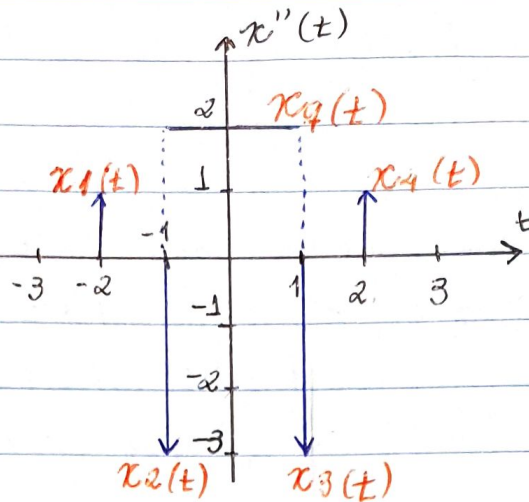 x''(t)
2 x9(t)
x1(t) 1 x4(t)
-1 t
-3 -2 1 2 3
-1
-2
-3
x2(t) x3(t)